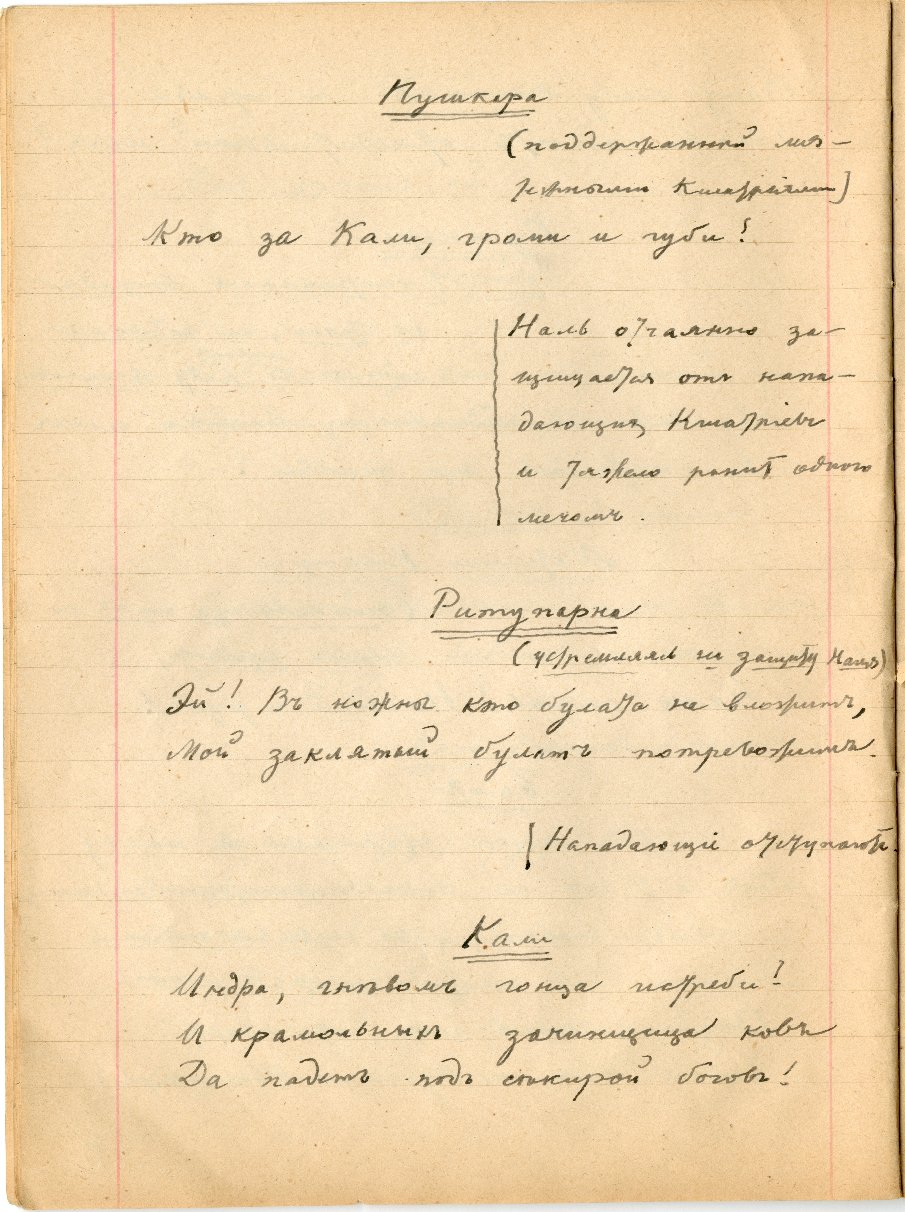 Пушкара
(поддержанный мя-
тежными Кшатріями)
Кто за Кали, громи и губи!
Наль отчаянно за-
щищается отъ напа-
дающихъ Кшатріевъ
и тяжело ранитъ одного
мечомъ.
Ритупарна
(устремляясь на защиту Наля)
Эй! Въ ножны кто булата не вложитъ,
Мой заклятый булатъ потревожитъ.
Нападающіе отступаютъ.
Кали
Индра, гнѣвомъ гонца истреби!
И крамольныхъ зачинщица ковъ
Да падетъ подъ секирой боговъ!